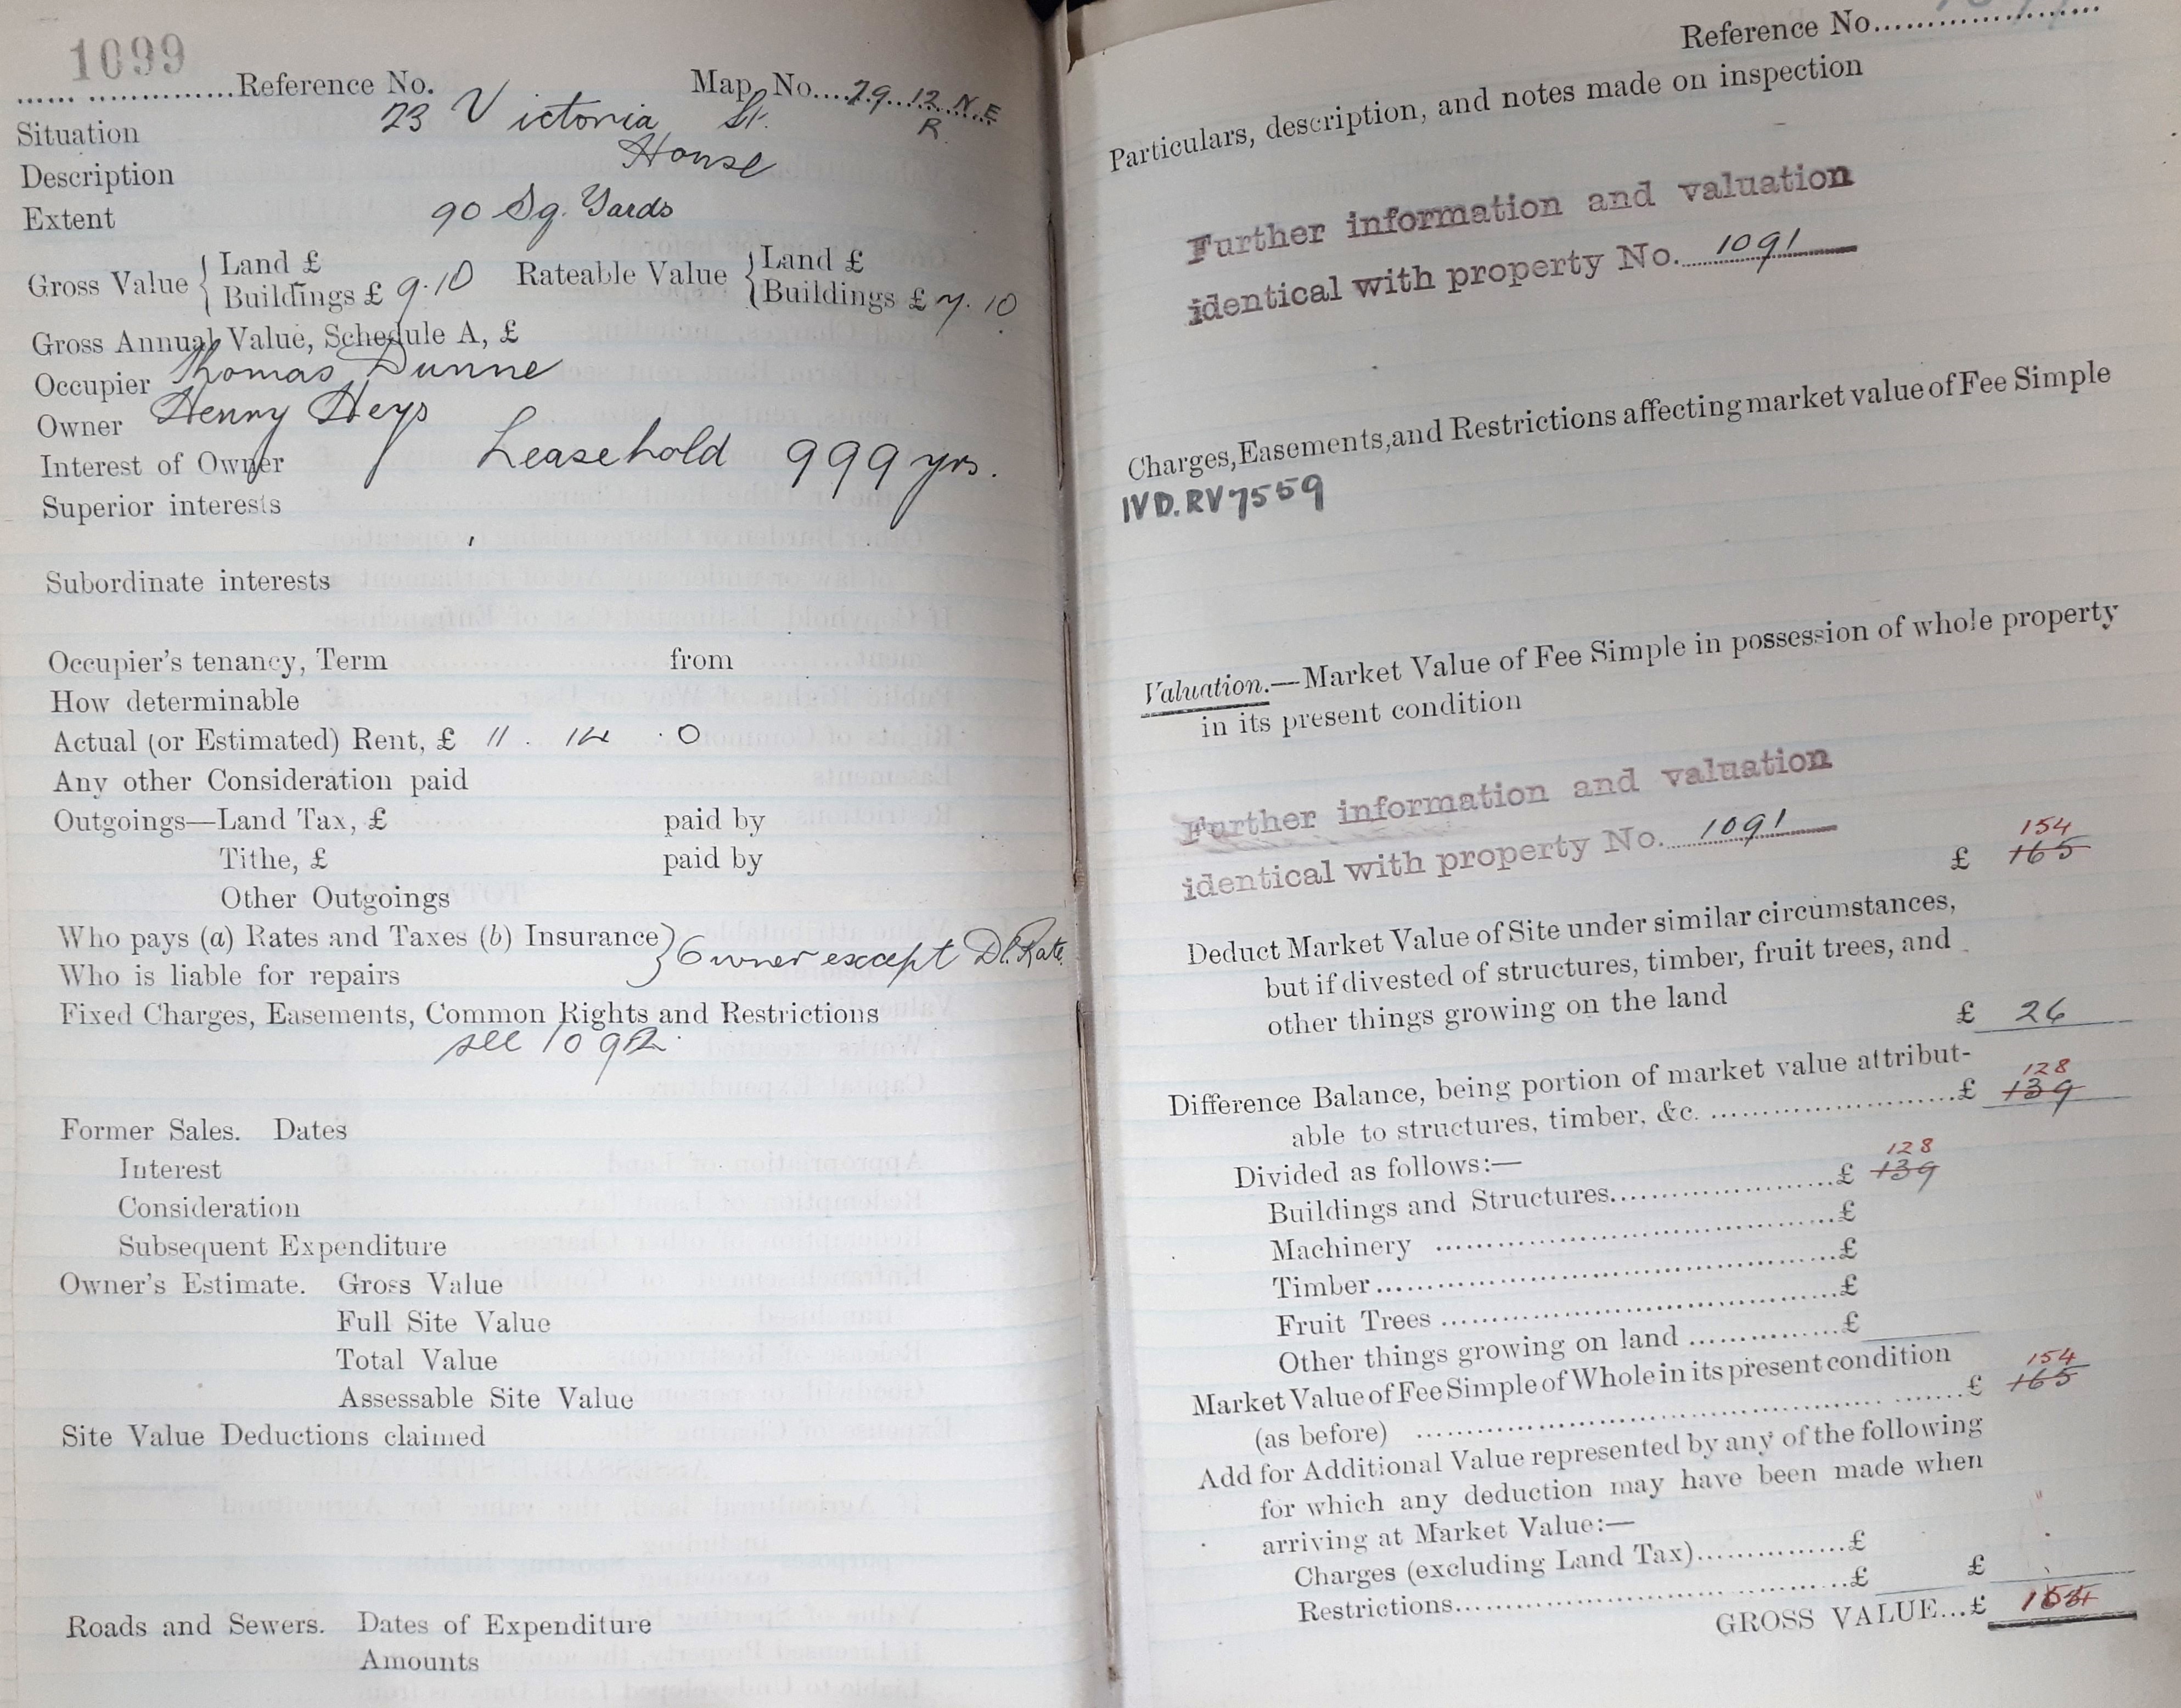 1099
Reference No. Map No. 29.12 N.E
R.
Situation 23 Victoria St.
Description House
Extent 90 Sq. Yards
Gross Value { Land £
Buildings £ 9.10
Rateable Value { Land £
Buildings £ 7.10
Gross Annual Value, Schedule A, £
Occupier Thomas Dunne
Owner Henry Heys
Interest of Owner Leasehold 999 yrs.
Superior interests
Subordinate interests
Occupier's tenancy, Term from
How determinable
Actual (or Estimated) Rent, £ 11 . 14 . 0
Any other Consideration paid
Outgoings—Land Tax, £ paid by
Tithe, £ paid by
Other Outgoings
Who pays (a) Rates and Taxes (b) Insurance
Who is liable for repairs } Owner except Dt. Rate.
Fixed Charges, Easements, Common Rights and Restrictions
see 1092.
Former Sales. Dates
Interest
Consideration
Subsequent Expenditure
Owner's Estimate. Gross Value
Full Site Value
Total Value
Assessable Site Value
Site Value Deductions claimed
Roads and Sewers. Dates of Expenditure
Amounts
Reference No.
Particulars, description, and notes made on inspection
Further information and valuation
identical with property No. 1091
Charges, Easements, and Restrictions affecting market value of Fee Simple
IVD. RV 7559
Valuation.—Market Value of Fee Simple in possession of whole property
in its present condition
Further information and valuation
identical with property No. 1091
154
£ 165
Deduct Market Value of Site under similar circumstances,
but if divested of structures, timber, fruit trees, and
other things growing on the land £ 26
Difference Balance, being portion of market value attribut-
128
able to structures, timber, &c. £ 139
Divided as follows:—
128
Buildings and Structures £ 139
Machinery £
Timber £
Fruit Trees £
Other things growing on land £
Market Value of Fee Simple of Whole in its present condition
154
(as before) £ 165
Add for Additional Value represented by any of the following
for which any deduction may have been made when
arriving at Market Value:—
Charges (excluding Land Tax) £
Restrictions £ £
GROSS VALUE...£ 154